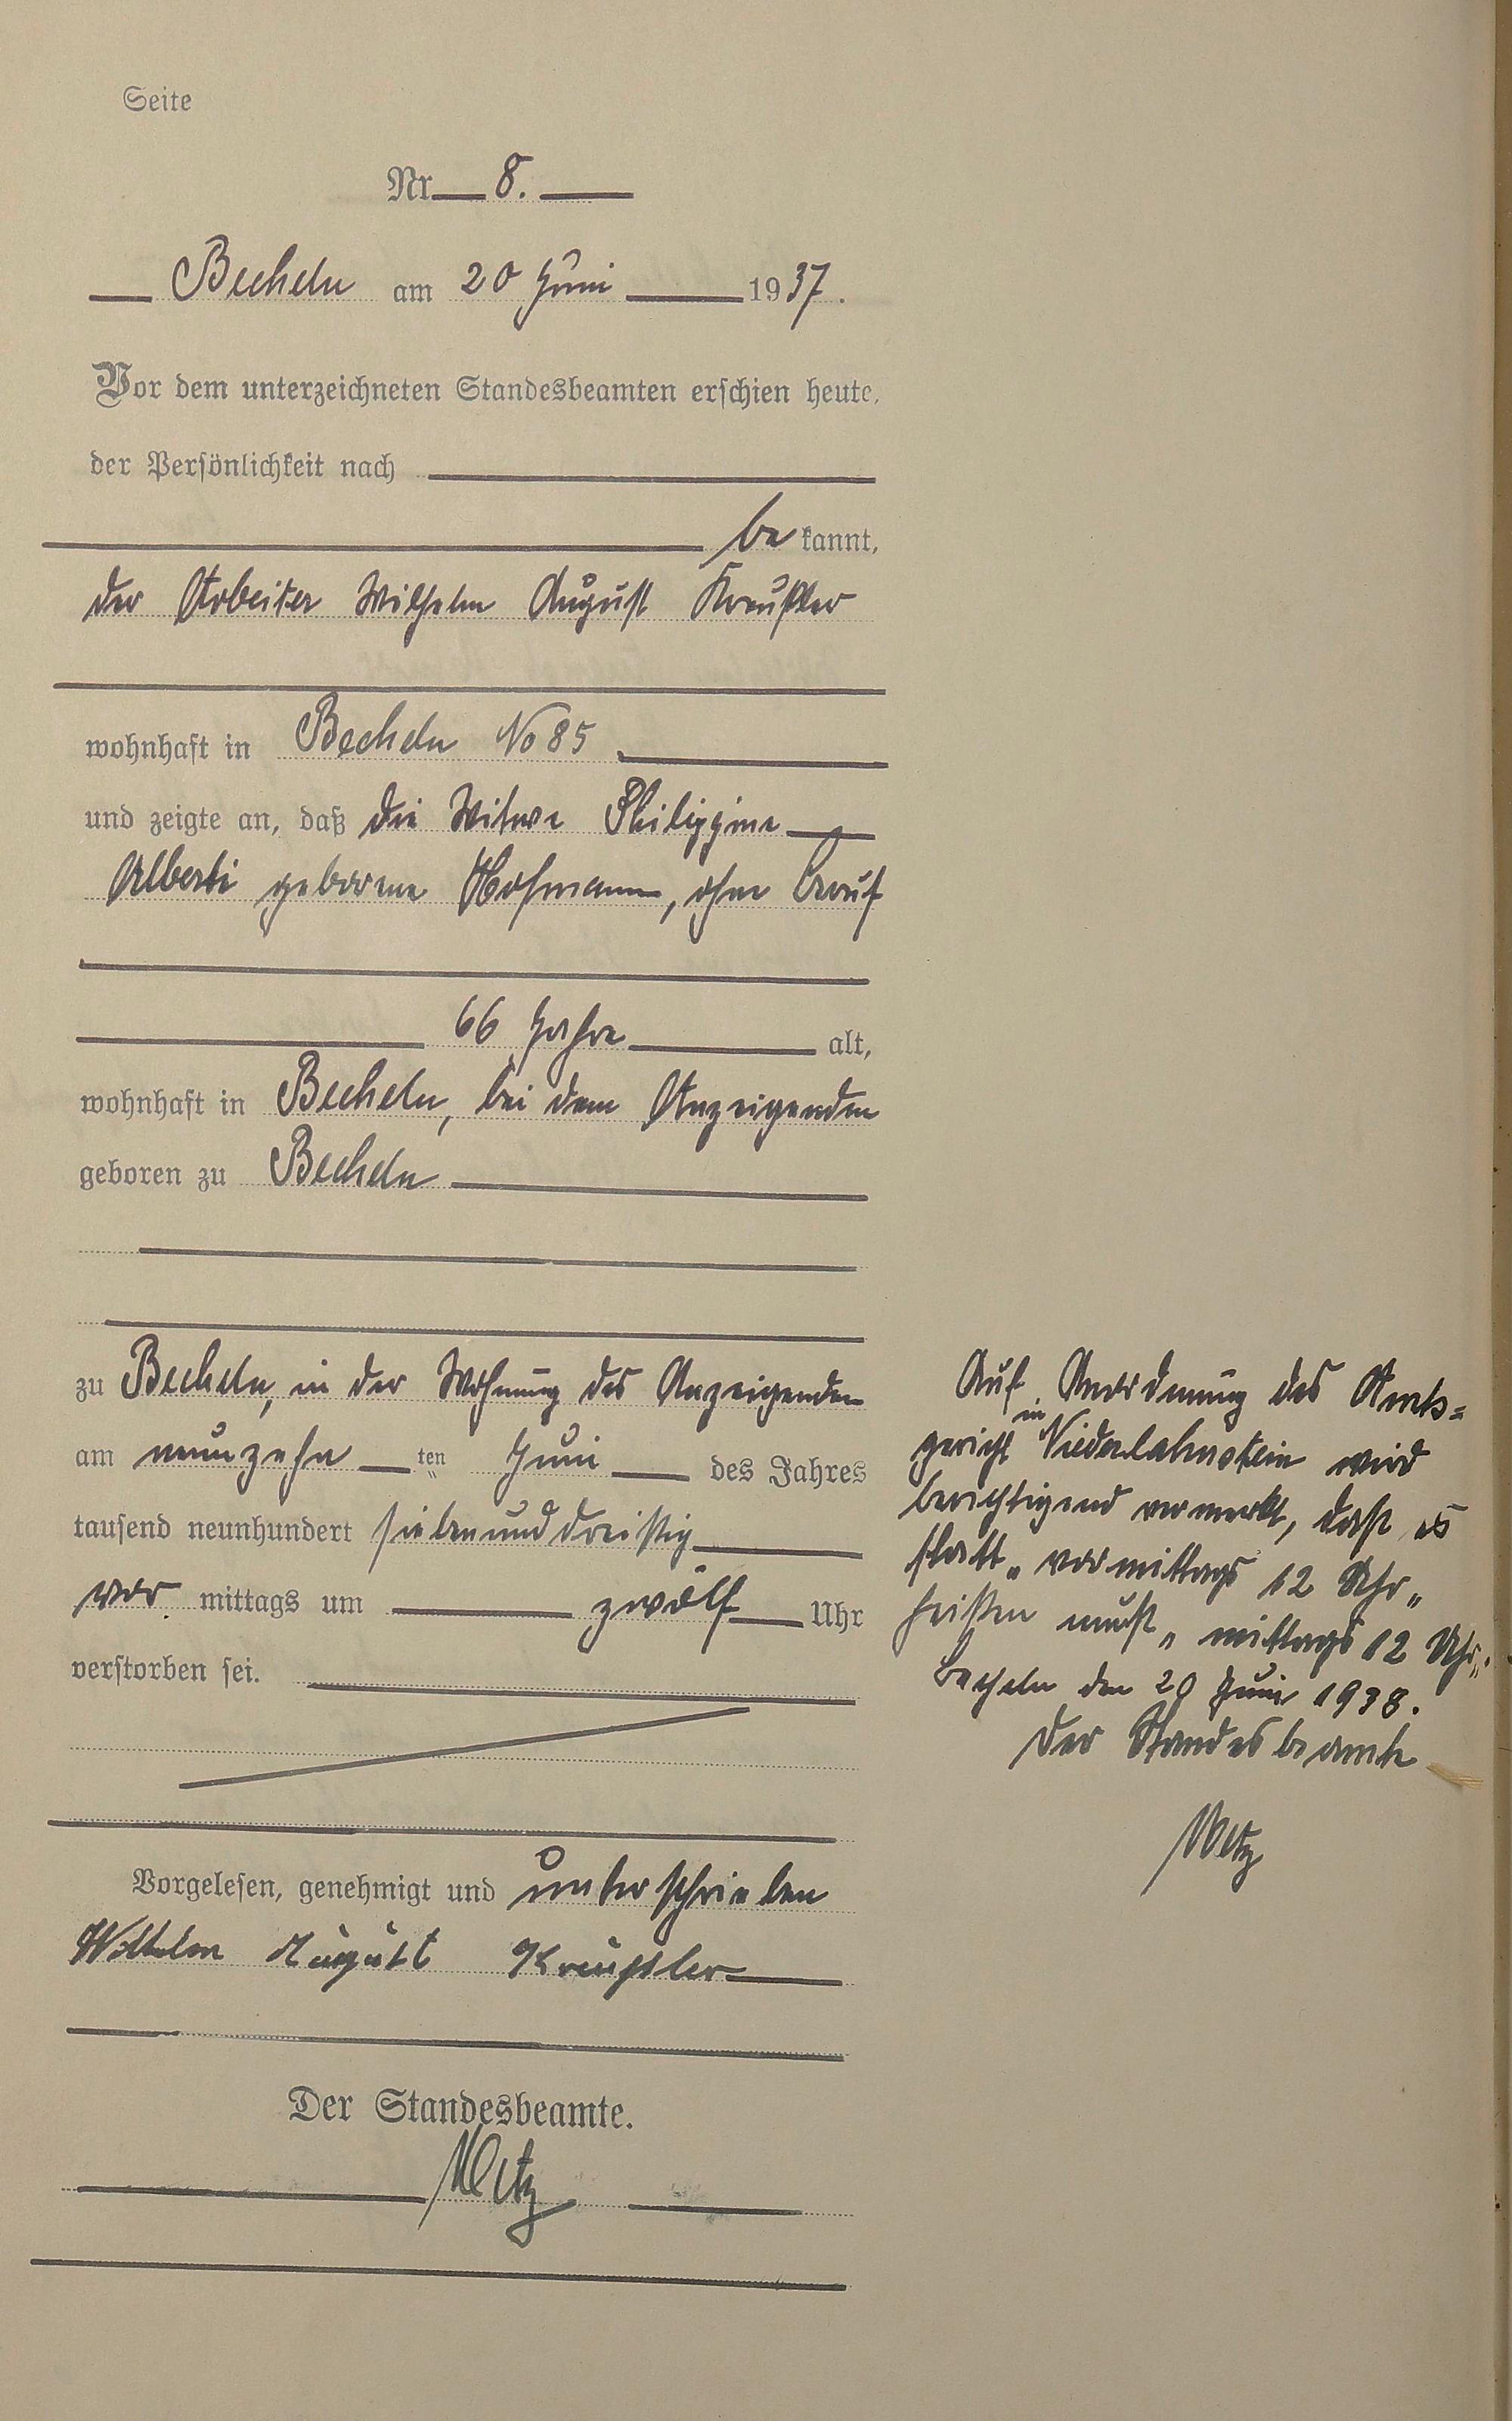 Seite
Nr. 8.
Becheln am 20 Juni 1937.
Vor dem unterzeichneten Standesbeamten erschien heute,
der Persönlichkeit nach
be kannt,
der Arbeiter Wilhelm August Kreußler
wohnhaft in Becheln No 85
und zeigte an, daß die Witwe Philippine
Alberti geborene Hofmann, ohne Beruf
66 Jahre alt,
wohnhaft in Becheln, bei dem Anzeigenden
geboren zu Becheln
zu Becheln, in der Wohnung des Anzeigenden
am neunzehn ten Juni des Jahres
tausend neunhundert siebenunddreißig
vor mittags um zwölf Uhr
verstorben sei.
Vorgelesen, genehmigt und unterschrieben
Wilhelm August Kreußler
Der Standesbeamte.
Metz
Auf Anordnung des Amts=
gericht in Niederlahnstein wird
berichtigend vermerkt, daß es
statt „vormittags 12 Uhr„
heißen muß „mittags 12 Uhr„.
Becheln den 20 Juni 1938.
Der Standesbeamte
Metz